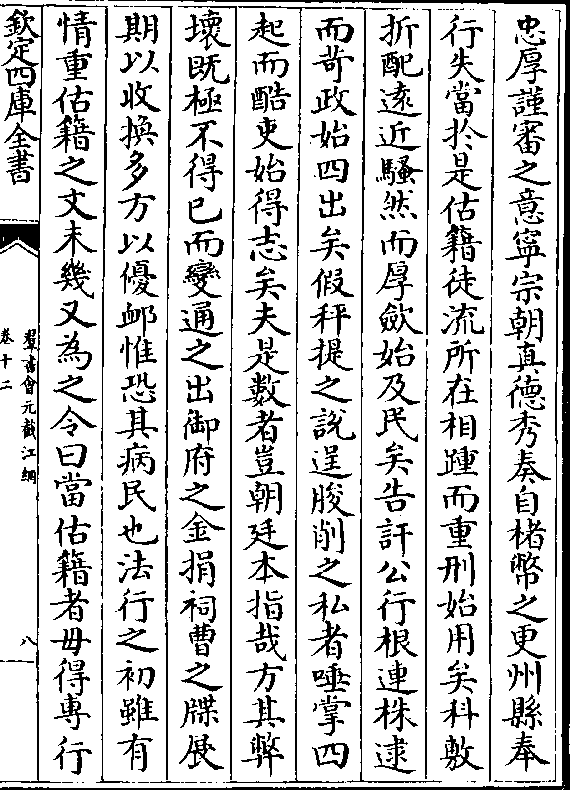 忠厚謹審之意寧宗朝真德秀奏自楮幣之更州縣奉
行失當於是估籍徒流所在相踵而重刑始用矣科敷
折配逺近騷然而厚歛始及民矣告訐公行根連株逮
而苛政始四出矣假秤提之說逞朘削之私者唾掌四
起而酷吏始得志矣夫是數者豈朝廷本指哉方其弊
壊既極不得已而變通之出御府之金捐祠曹之牒展
期以收換多方以優䘏惟恐其病民也法行之初雖有
情重估籍之文未幾又為之令曰當估籍者毋得專行
欽定四庫全書
羣書會元截江網
卷十二
八